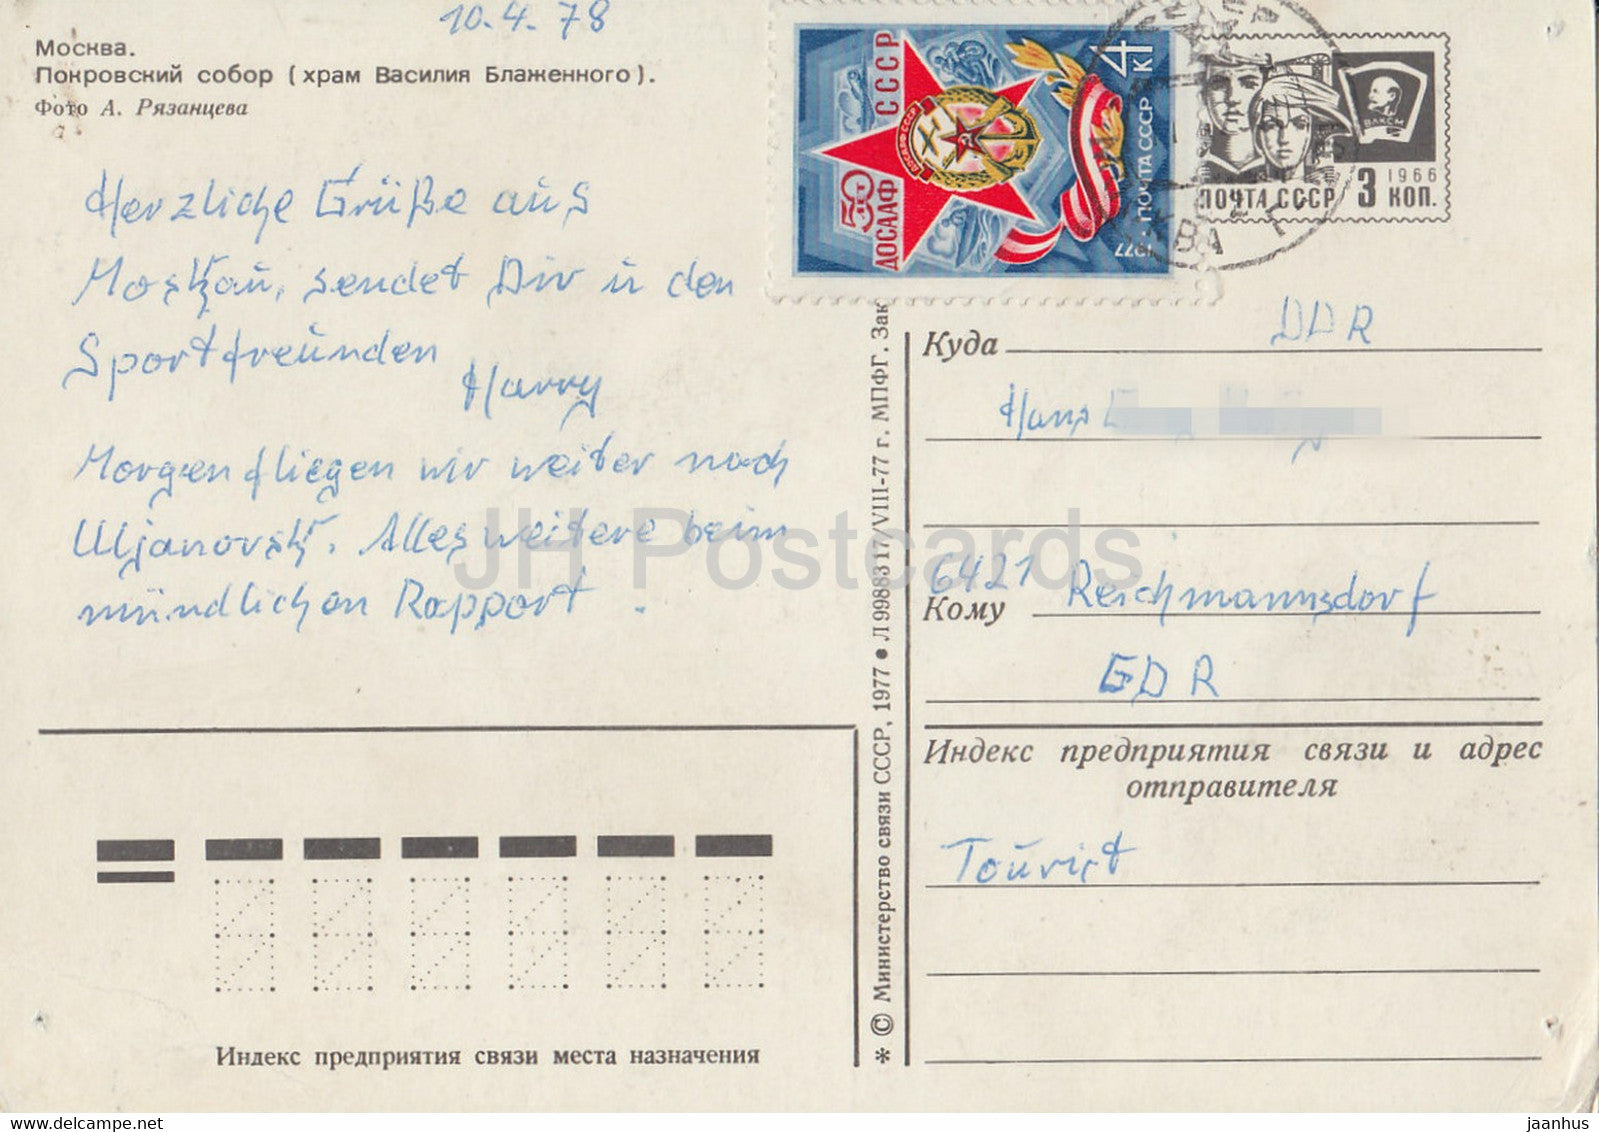 10.4.78
Москва.
Покровский собор (храм Василия Блаженного).
Фото А. Рязанцева
Herzliche Grüße aus
Moskau, sendet Dir u den
Sportfreunden
Harry
Morgen fliegen wir weiter nach
Uljanovsk. Alles weitere beim
mündlichen Rapport.
Индекс предприятия связи места назначения
* © Министерство связи СССР, 1977 • Л 9988317/VIII-77 г. МПФГ. Зак
50 лет
ДОСААФ СССР
ДОСААФ СССР
4 к
1977 • ПОЧТА СССР
ВЛКСМ
1966
ПОЧТА СССР 3 КОП.
Куда DDR
Hans
6421
Кому Reichmannsdorf
GDR
Индекс предприятия связи и адрес
отправителя
Tourist
JH Postcards
delcampe.net
jaanhus